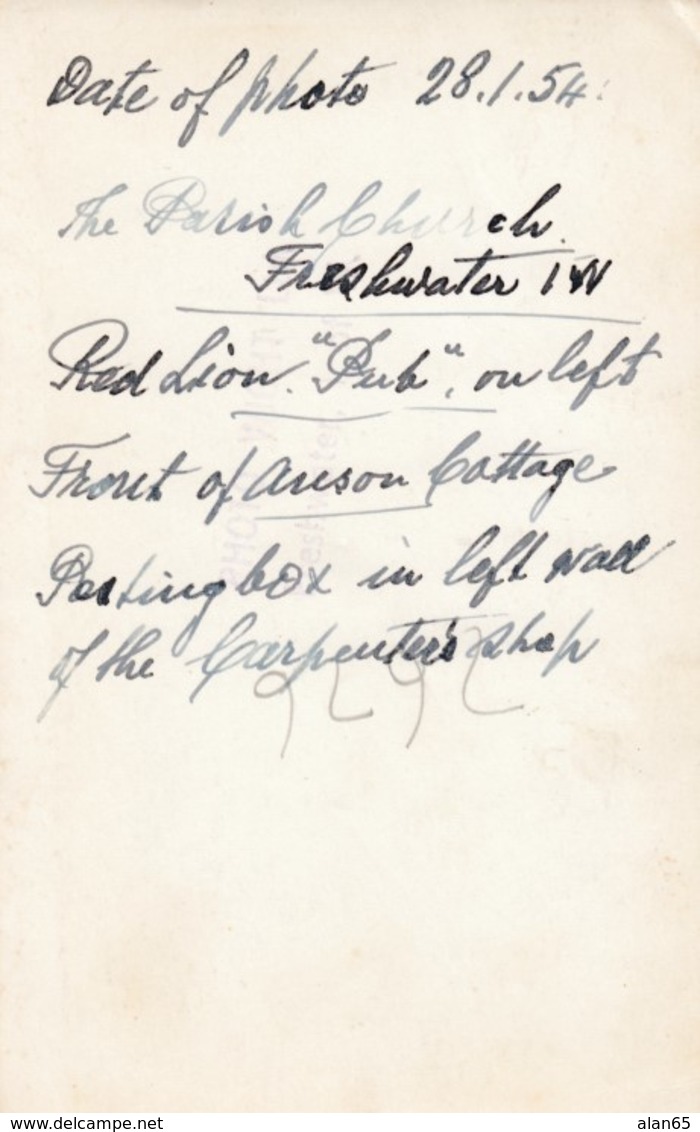 Date of photo 28.1.54.
The Parish Church
Freshwater IW
Red Lion "Pub", on left
Front of Anson Cottage
Posting box in left wall
of the Carpenter's shop
www.delcampe.net
alan65